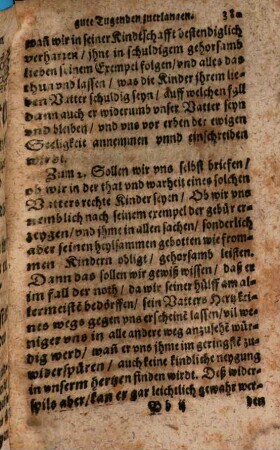 gute Tugenden zuerlangen. 38.
wañ wir in seiner Kindtschafft bestendiglich
verharren / jhne in schuldigem gehorsamb
lieben seinem Exempel folgen / vnd alles das
thun vnd lassen / was die Kinder jhrem lie-
ben Vatter schuldig seyn / Auff welchen fall
dann auch er widerumb vnser Vatter seyn
vnd bleiben / vnd vns vor erben der ewigen
Seeligkeit annemmen vnnd einschreiben
wirdt.
Zum 2. Sollen wir vns selbst briefen /
ob wir in der that vnd warheit eines solchen
Vatters rechte Kinder seyen / Ob wir vns
nemblich nach seinem exempel der gebür er-
zeygen / vnd jhme in allen sachen / sonderlich
aber seinen heylsammen gebotten wie from-
men Kindern obligt / gehorsamb leisten.
Dann das sollen wir gewiß wissen / daß er
im fall der noth / da wir seiner hülff am al-
lermeistē bedörffen / sein Vatters Hertz kei-
nes wegs gegen vns erscheinē lassen / vil we-
niger vns in alle andere weg anzusehē wür-
dig werd / wañ er vns jhme im geringstē zu-
widerspüren / auch keine kindliche neygung
in vnserm hertzen finden wirdt. Deß wider-
spils aber / kan er gar leichtlich gewahr wer-
den